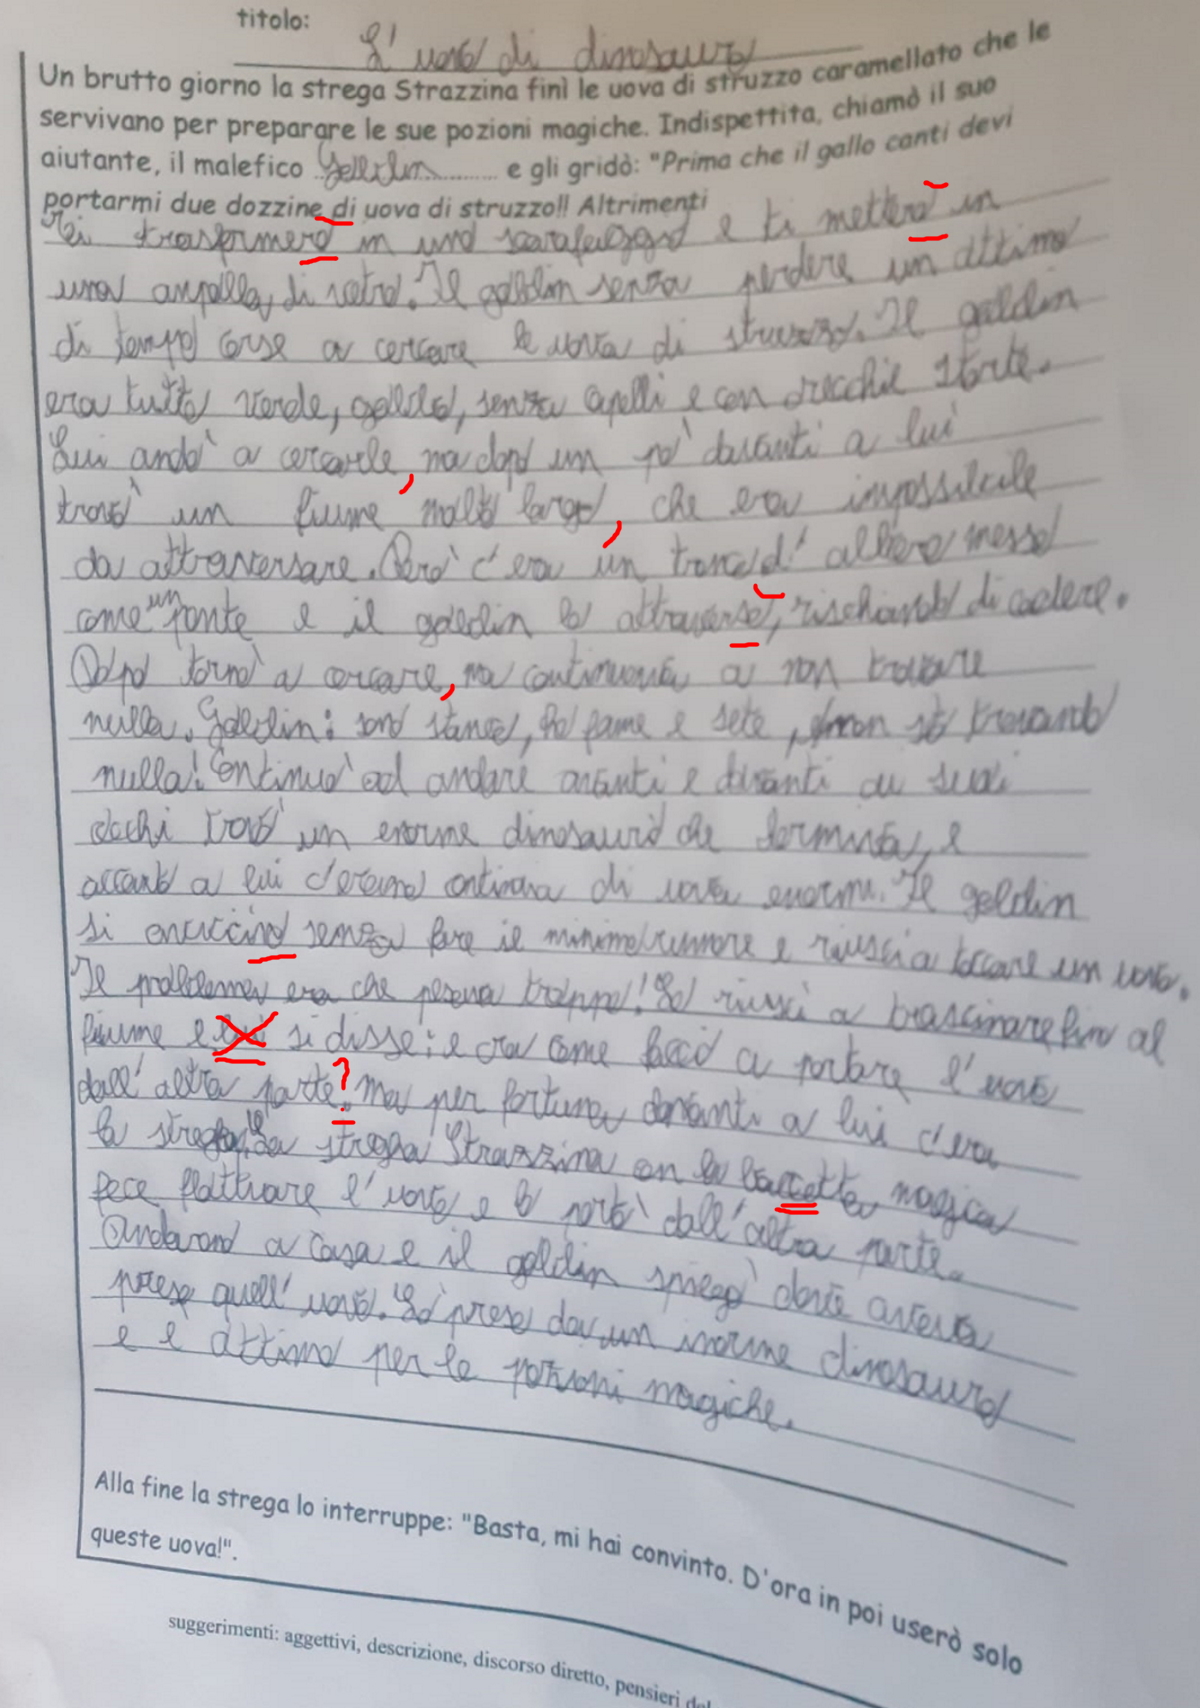 titolo: L'uovo di dinosauro
Un brutto giorno la strega Strazzina finì le uova di struzzo caramellato che le
servivano per preparare le sue pozioni magiche. Indispettita, chiamò il suo
aiutante, il malefico Goldin e gli gridò: "Prima che il gallo canti devi
portarmi due dozzine di uova di struzzo!! Altrimenti
trasformero in uno scarafaggio e ti mettero in
una ampolla, di vetro. Il goldin senza perdere un attimo
di tempo corse a cercare le uova di struzzo. Il goldin
era tutto verde, gobbo, senza capelli e con orecchie storte.
Lui andò a cercarle, ma dopo un pò davanti a lui
trovò un fiume molto largo, che era impossibile
da attraversare. Però c'era un tronco d'albero messo
come un ponte e il goldin lo attraverso, rischiando di cadere.
Dopo tornò a cercare, ma continuava a non trovare
nulla. Goldin: sono stanco, ho fame e sete, non stò trovando
nulla! Continuò ad andare avanti e davanti ai suoi
occhi trovò un enorme dinosauro che dormiva, e
accanto a lui c'erano centinaia di uova enormi. Il goldin
si avvicino senza fare il minimo rumore e riuscì a toccare un uovo.
Il problema era che pesava troppo! Lo riuscì a trascinare fin al
fiume e lui si disse: e ora come faccio a portare l'uovo
dall'altra parte? Ma per fortuna davanti a lui c'era
la strega. La strega Strazzina con la baccetta magica
fece fluttuare l'uovo e lo portò dall'altra parte.
Andarono a casa e il goldin spiegò dove aveva
preso quell'uovo. Lo prese da un inorme dinosauro
e è ottimo per le pozioni magiche.
Alla fine la strega lo interruppe: "Basta, mi hai convinto. D'ora in poi userò solo
queste uova!".
suggerimenti: aggettivi, descrizione, discorso diretto, pensieri